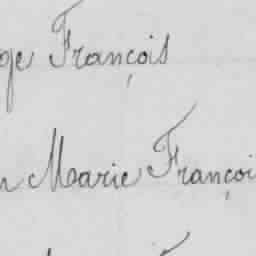 François
Marie Françoi